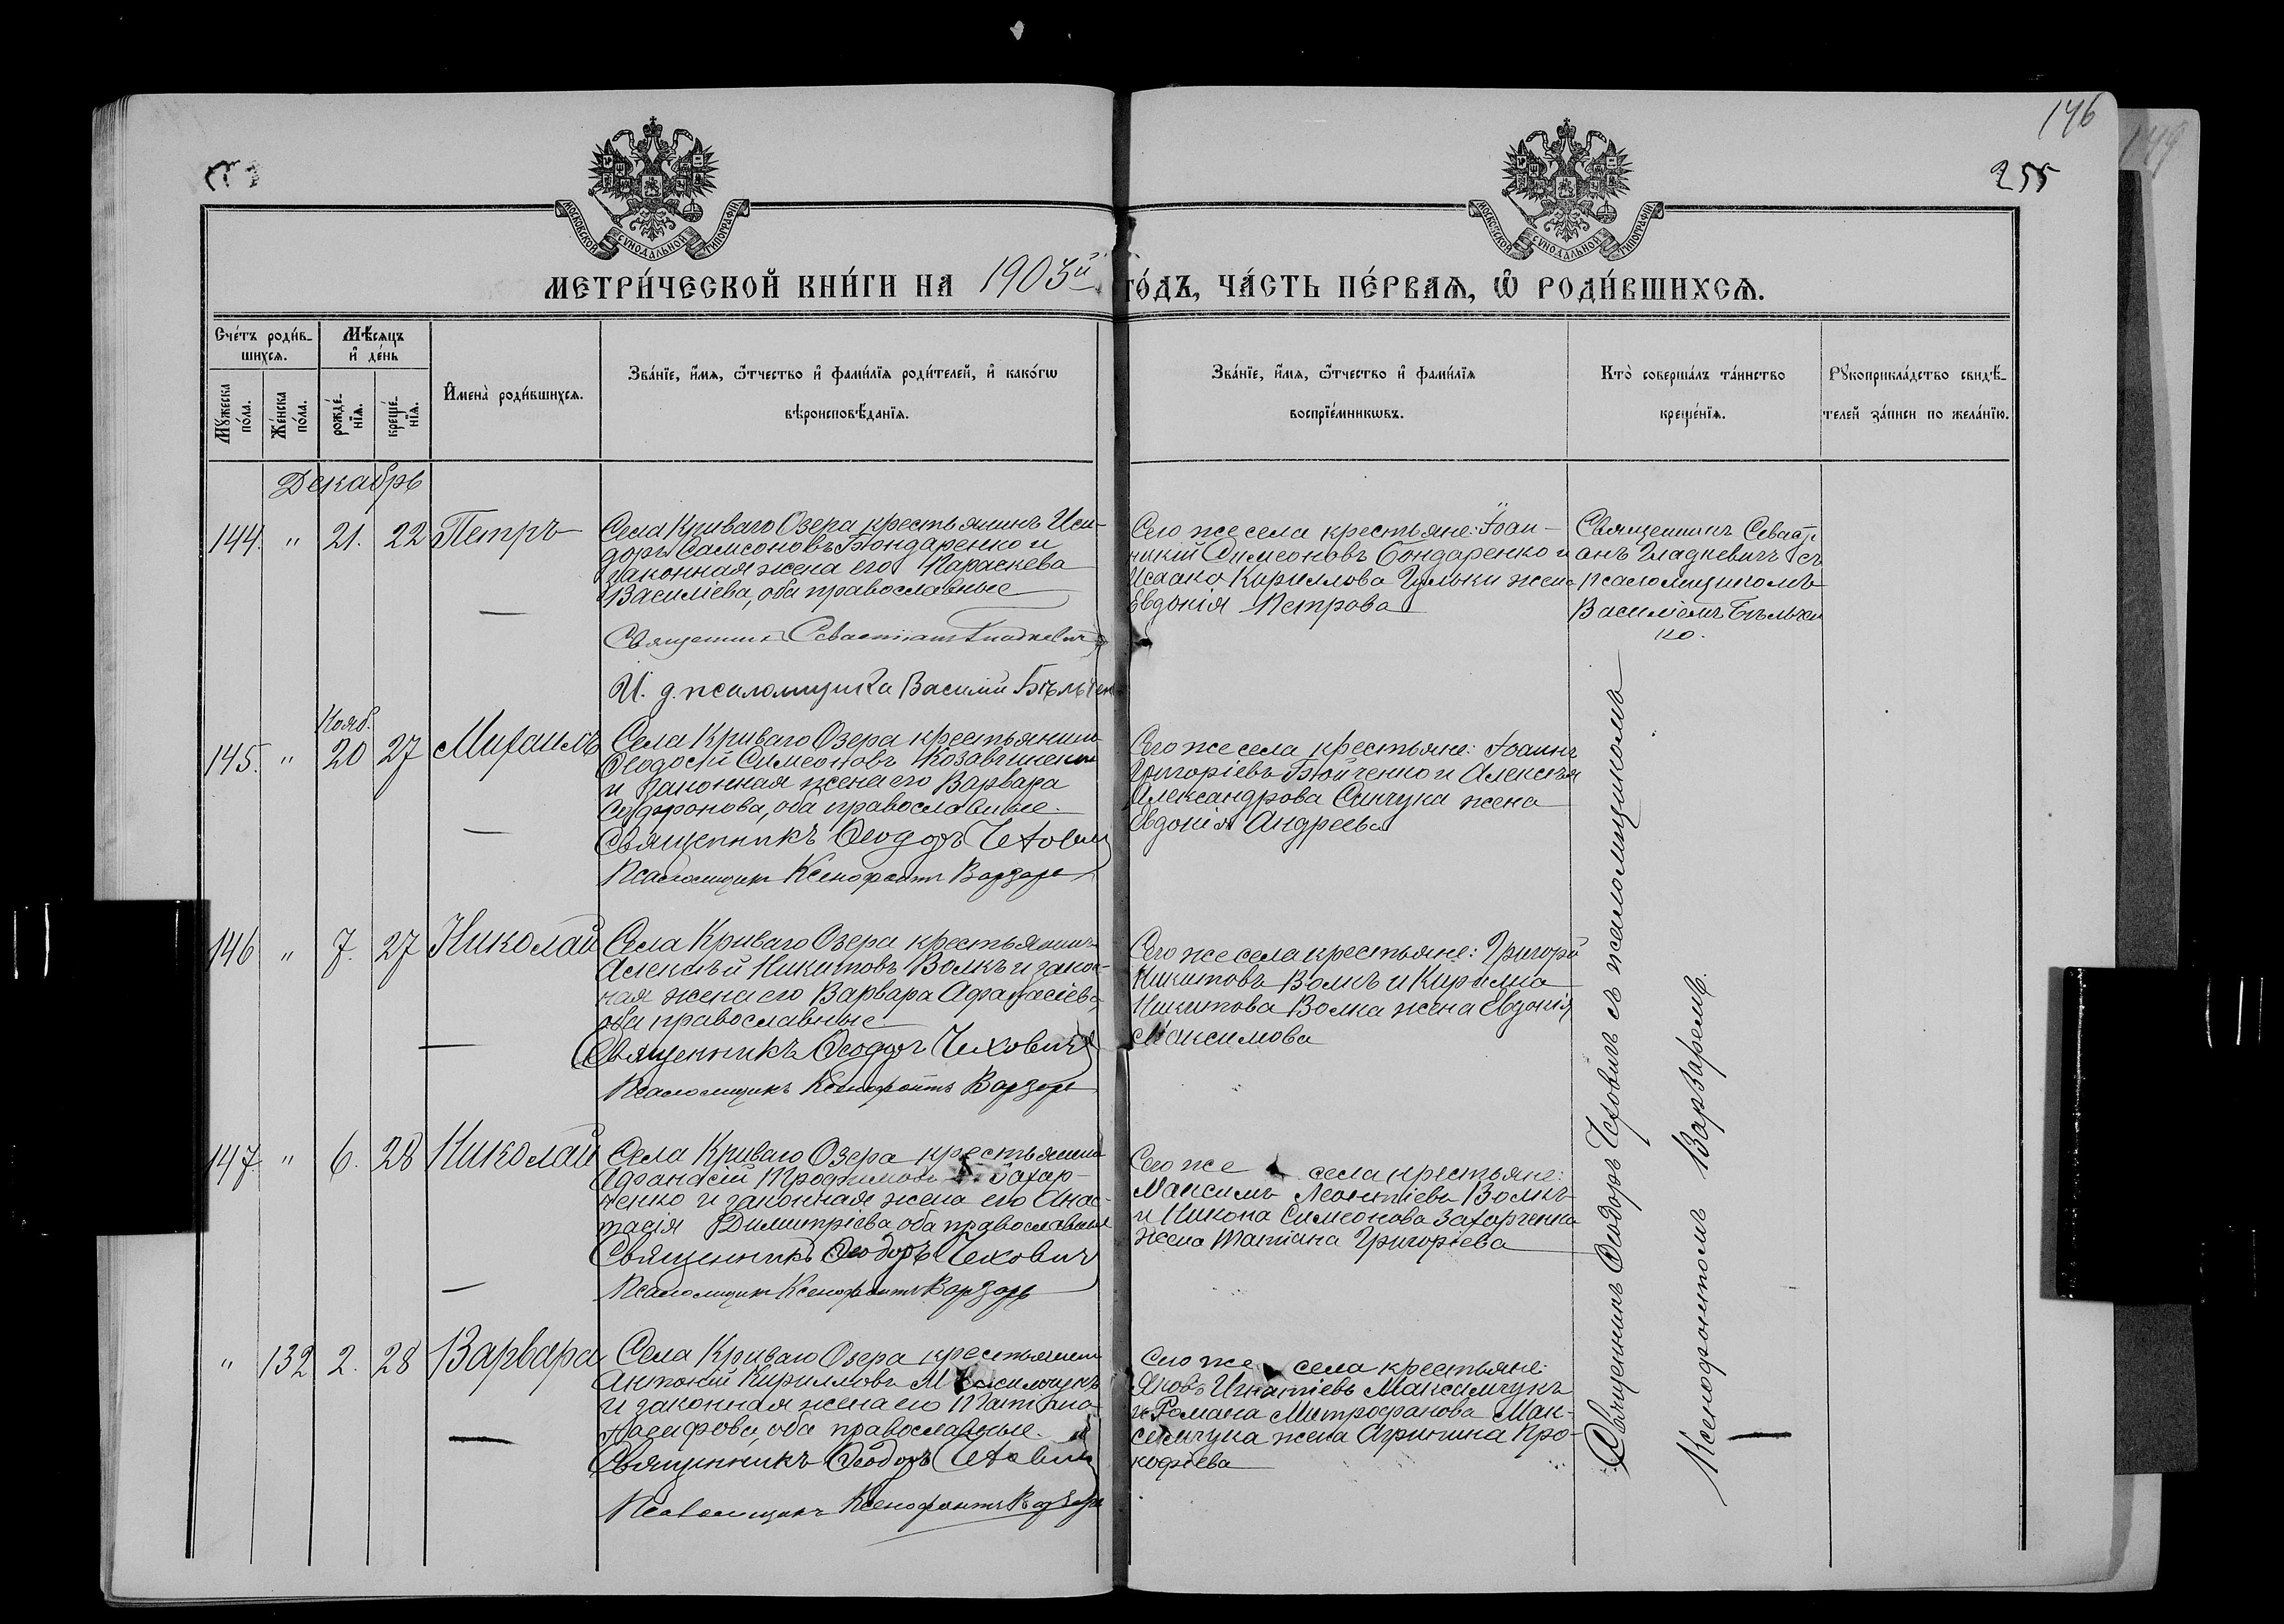 146
149
255
МОСКОВСКОЙ СѴНОДАЛЬНОЙ ТИПОГРАФІИ
МОСКОВСКОЙ СѴНОДАЛЬНОЙ ТИПОГРАФІИ
МЕТРИ́ЧЕСКОЙ КНИ́ГИ НА 1903й ГО́ДЪ, ЧА́СТЬ ПЕ́РВАѦ, Ѿ РОДИ́ВШИХСѦ.
Сче́тъ роди́в-
шихсѧ.
Мѣ́сѧцъ
и҆ де́нь
Мꙋ́жеска
по́ла.
Же́нска
по́ла.
рожде́-
нїѧ.
креще́-
нїѧ.
И҆мена̀ роди́вшихсѧ.
Зва́нїе, и҆́мѧ, ѻ҆́тчество и҆ фами́лїѧ роди́телей, и҆ како́гѡ
вѣроисповѣ́данїѧ.
Зва́нїе, и҆́мѧ, ѻ҆́тчество и҆ фами́лїѧ
воспрїе́мникѡвъ.
Кто̀ соверша́лъ та́инство
креще́нїѧ.
Рꙋкоприкла́дство свидѣ́-
телей за́писи по жела́нїю.
Декабрь
144. " 21. 22 Петръ
Села Криваго Озера крестьянинъ Иси-
доръ Самсоновъ Бондаренко и
законная жена его Параскева
Василіева, оба православные
Священникъ Севастіанъ Гладкевичъ
И. д. псаломщика Василій Бѣльчен
Сего же села крестьяне: Іоан-
никій Симеоновъ Бондаренко и
Исаака Кириллова Гульки жена
Евдокія Петрова
Священникъ Севасті-
анъ Гладкевичъ съ
псаломщикомъ
Василіемъ Бѣльчен
ко.
Нояб.
145. " 20 27 Михаилъ
Села Криваго Озера крестьянинъ
Ѳеодосій Симеоновъ
и законная жена его Варвара
Софронова, оба православные.
Священникъ Ѳеодоръ Чехович
Псаломщикъ Ксенофонтъ Варзарь
Сего же села крестьяне: Іоаннъ
Григоріевъ Бойченко и Алексѣя
Александрова Синчука жена
Евдокія Андреева
146 " 7. 27 Николай
Села Криваго Озера крестьянинъ
Алексѣй Никитовъ Волкъ и закон-
ная жена его Варвара Афанасіева,
оба православные
Священникъ Ѳеодоръ Чехович
Псаломщикъ Ксенофонтъ Варзарь
Сего же села крестьяне: Григорій
Никитовъ Волкъ и Кирилла
Никитова Волка жена Евдокія
Максимова
147. " 6. 28 Николай
Села Криваго Озера крестьянинъ
Афанасій Трофимовъ Захар-
ченко и законная жена его Анас-
тасія Димитріева, оба православные
Священникъ Ѳеодоръ Чехович
Псаломщикъ Ксенофонтъ Варзарь
Сего же села крестьяне:
Максимъ Леонтіевъ Волкъ
и Никона Симеонова Захарченка
жена Татіана Григорьева
" 132 2. 28 Варвара
Села Криваго Озера крестьянинъ
Антоній Кирилловъ Максимчукъ
и законная жена его Татіана
Іосифова, оба православные.
Священникъ Ѳеодоръ Чехович
Псаломщикъ Ксенофонтъ Варзарь
Сего же села крестьяне:
Яковъ Игнатіевъ Максимчукъ
и Романа Митрофанова Мак-
симчука жена Агрипина Про-
кофіева
Священникъ Ѳеодоръ Чеховичъ съ псаломщикомъ
Ксенофонтомъ Варзаремъ.